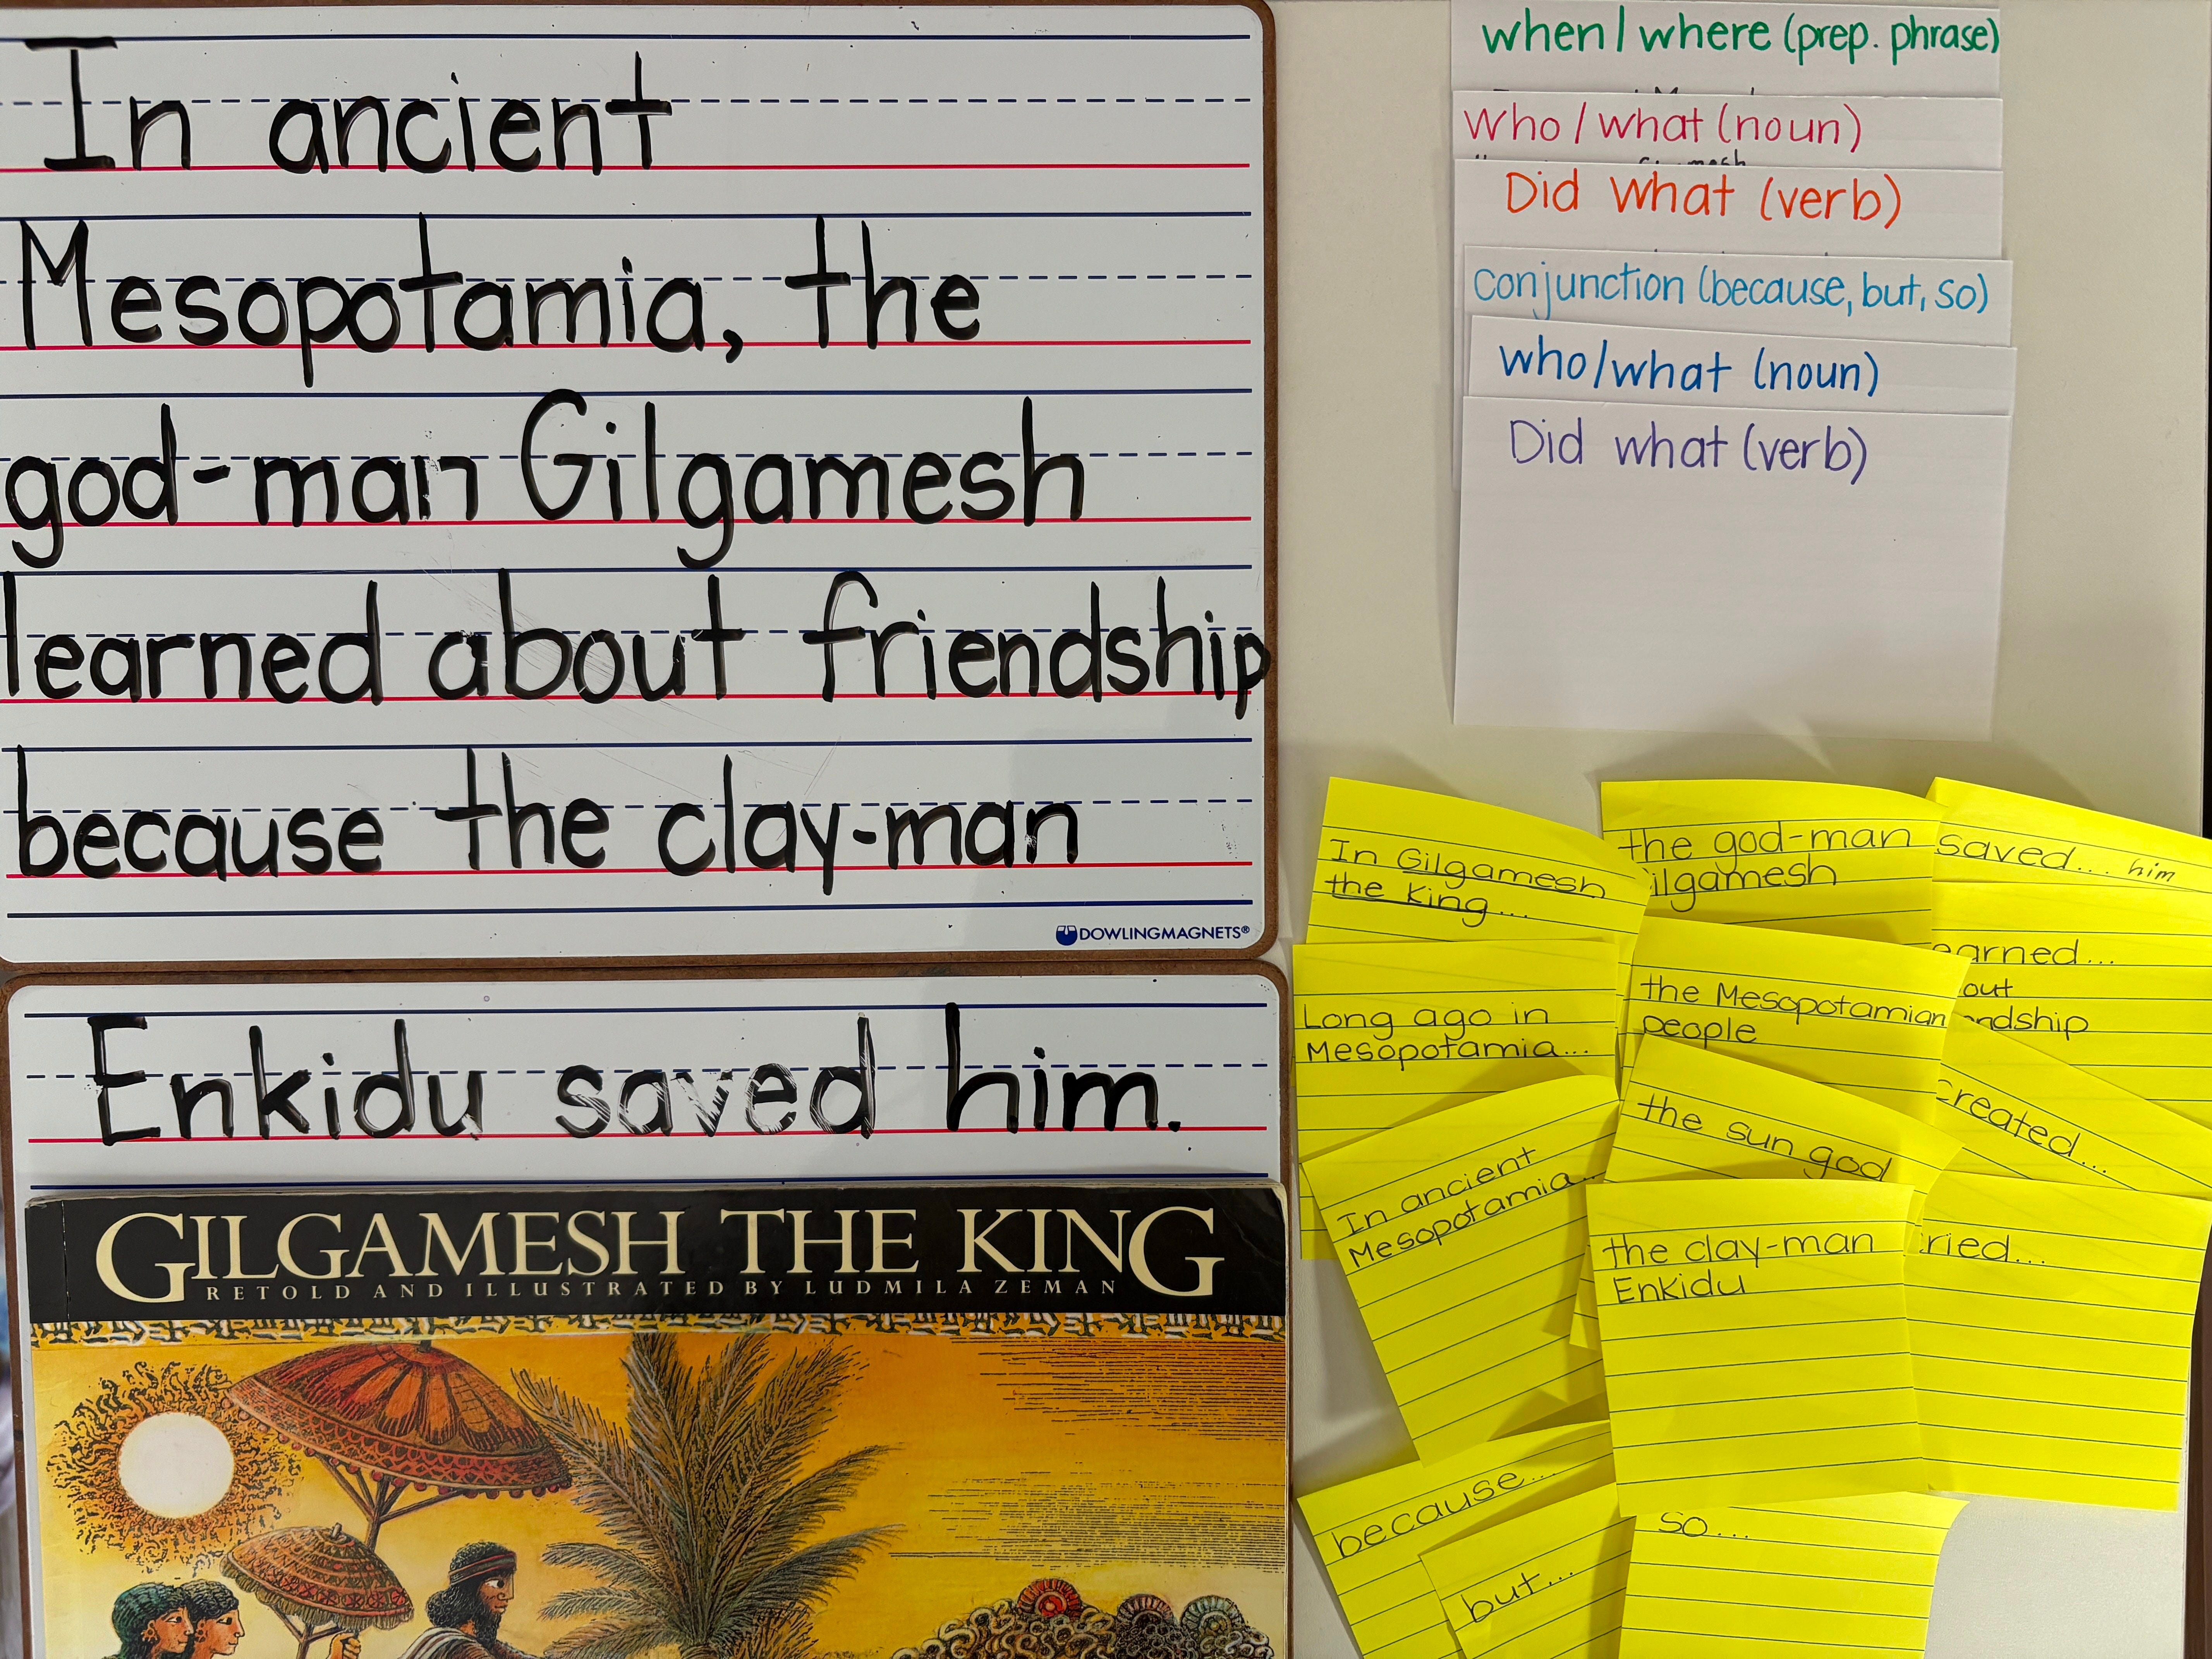 In ancient
Mesopotamia, the
god-man Gilgamesh
learned about friendship
because the clay-man
DOWLINGMAGNETS®
Enkidu saved him.
GILGAMESH THE KING
RETOLD AND ILLUSTRATED BY LUDMILA ZEMAN
when/where (prep. phrase)
who/what (noun)
Did what (verb)
conjunction (because, but, so)
who/what (noun)
Did what (verb)
In Gilgamesh
the King...
Long ago in
Mesopotamia...
In ancient
Mesopotamia...
the god-man
ilgamesh
the Mesopotamian
people
the sun god
the clay-man
Enkidu
saved... him
earned...
out
ndship
created...
ried...
because...
but...
so...